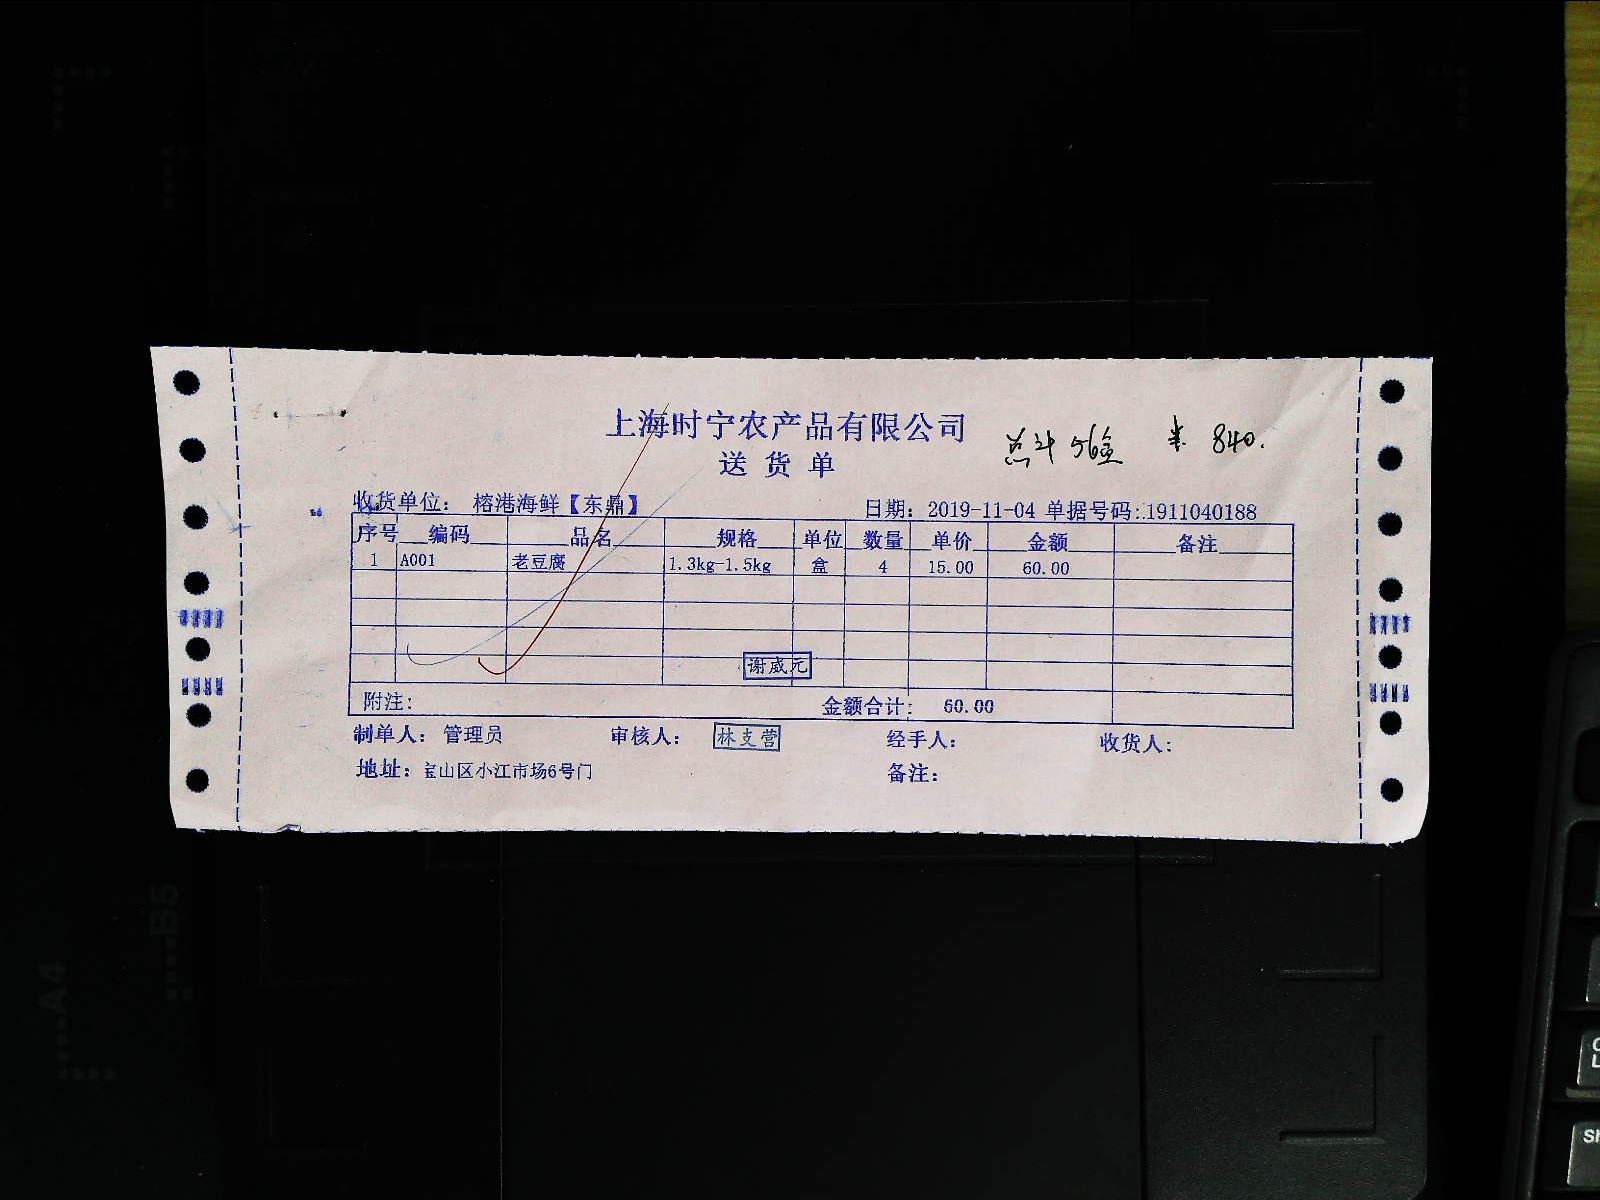 上海时宁农产品有限公司
总计 56盒 ¥ 840.
送货单
收货单位： 榕港海鲜【东鼎】 日期： 2019-11-04 单据号码：1911040188
序号 编码 品名 规格 单位 数量 单价 金额 备注
1 A001 老豆腐 1.3kg-1.5kg 盒 4 15.00 60.00
谢威元
附注： 金额合计： 60.00
制单人： 管理员 审核人： 林支营 经手人： 收货人：
地址： 宝山区小江市场6号门 备注：
B5
A4